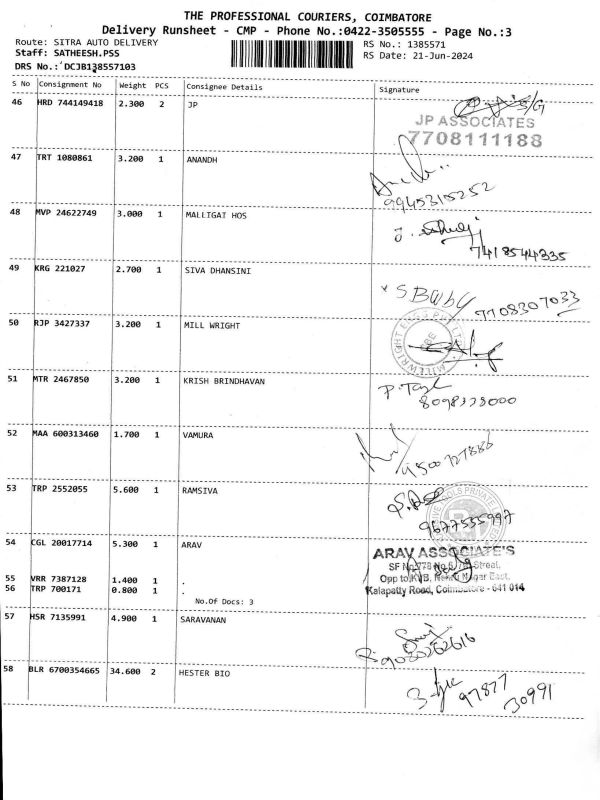 THE PROFESSIONAL COURIERS, COIMBATORE
Delivery Runsheet - CMP - Phone No.:0422-3505555 - Page No.:3
Route: SITRA AUTO DELIVERY
RS No.: 1385571
Staff: SATHEESH.PSS
RS Date: 21-Jun-2024
DRS No.: DCJB138557103
S No Consignment No Weight PCS Consignee Details Signature
46 HRD 744149418 2.300 2 JP
S/G
JP ASSOCIATES
7708111188
47 TRT 1080861 3.200 1 ANANDH
9945315252
48 MVP 24622749 3.000 1 MALLIGAI HOS
7418544335
49 KRG 221027 2.700 1 SIVA DHANSINI
S.Baby 7708307033
50 RJP 3427337 3.200 1 MILL WRIGHT
51 MTR 2467850 3.200 1 KRISH BRINDHAVAN
8098333000
52 MAA 600313460 1.700 1 VAMURA
53 TRP 2552055 5.600 1 RAMSIVA
9677535997
54 CGL 20017714 5.300 1 ARAV
ARAV ASSOCIATE'S
SF No.778 Street,
55 VRR 7387128 1.400 1 .
Opp to KVB, Nehru Nagar East,
56 TRP 700171 0.800 1 .
Kalapatty Road, Coimbatore - 641 014
No.Of Docs: 3
57 HSR 7135991 4.900 1 SARAVANAN
9080262616
58 BLR 6700354665 34.600 2 HESTER BIO
97877
30991